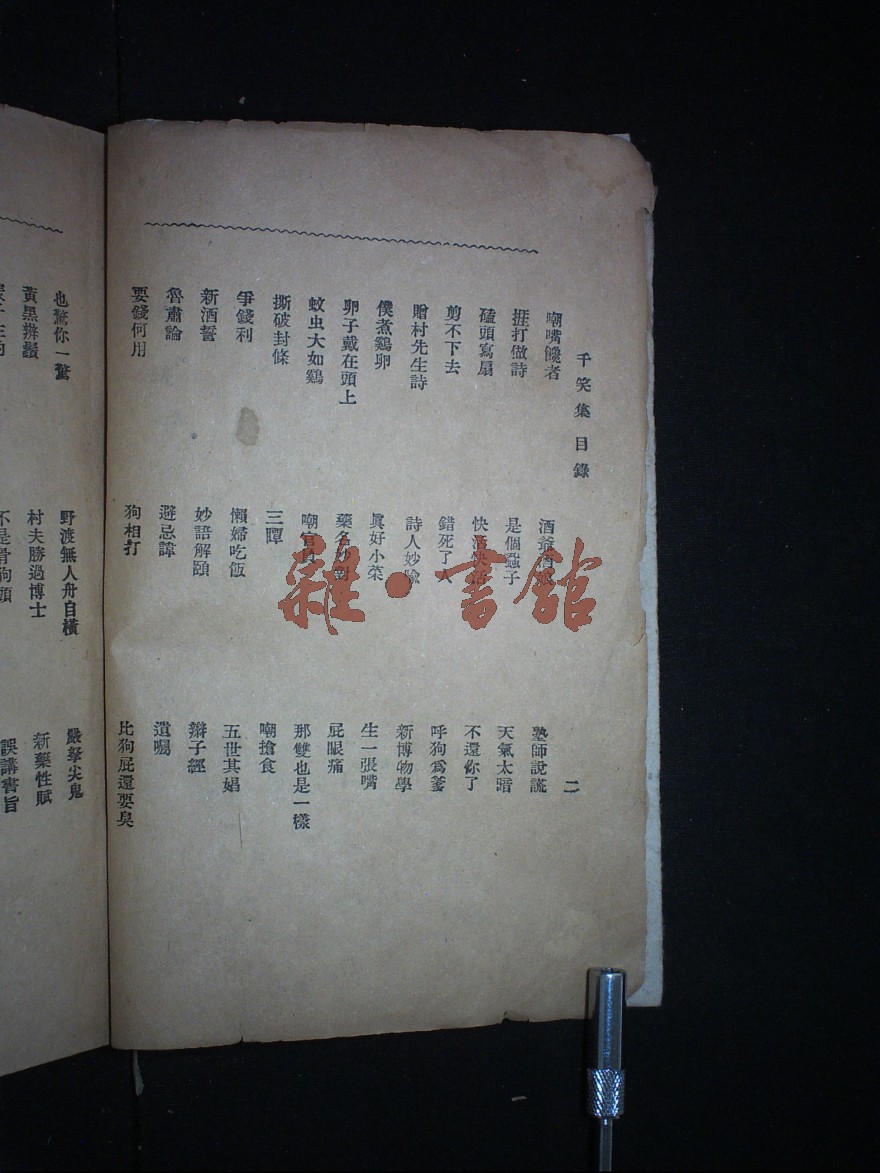 千笑集目錄
二
嘲嘴饞者
捱打做詩
磕頭寫扇
剪不下去
贈村先生詩
僕煮鷄卵
卵子戴在頭上
蚊虫大如鷄
撕破封條
爭錢利
新酒誓
魯肅論
要錢何用
酒爺
是個蝨子
快活快活
錯死了人
詩人妙喻
眞好小菜
藥名妙對
嘲官員
三譚
懶婦吃飯
妙語解頤
避忌諱
狗相打
塾師說謊
天氣太暗
不還你了
呼狗爲爹
新博物學
生一張嘴
屁眼痛
那雙也是一樣
嘲搶食
五世其娼
辮子經
遺囑
比狗屁還要臭
也驚你一驚
黃黑辨鬚
野渡無人舟自橫
村夫勝過博士
不是骨狗頭
嚴拏尖鬼
新藥性賦
誤講書旨
雜·書館